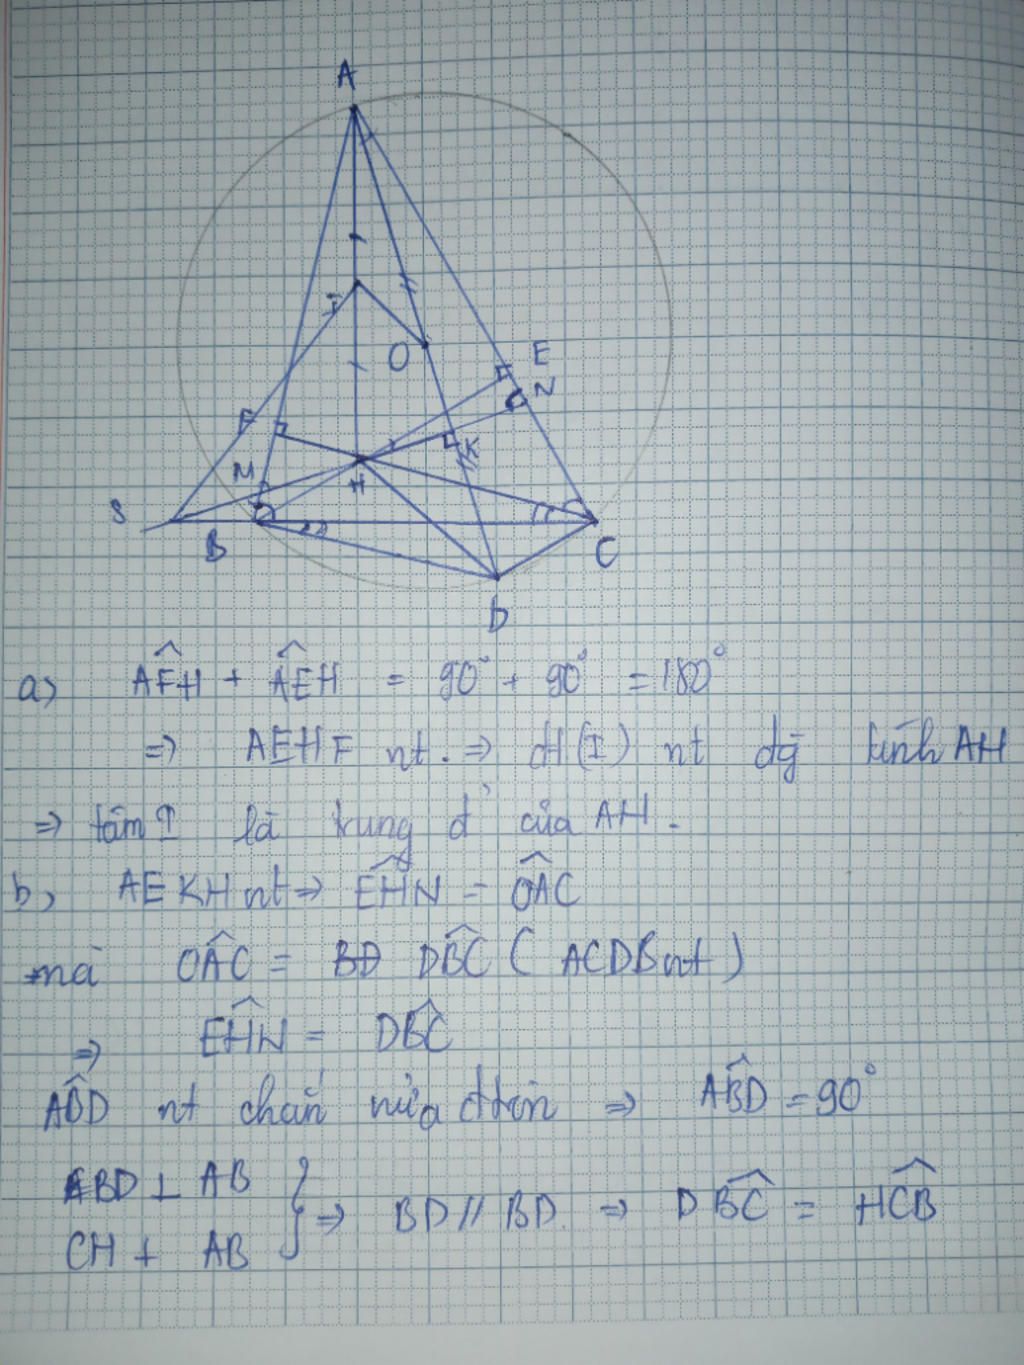 A
I
O
E
N
F
K
M
H
S
B
C
D
a) AF̂H + AÊH = 90° + 90° = 180°
=> AEHF nt. => đt (I) nt đg kính AH
=> tâm I là trung đ' của AH.
b, AEKH nt => EĤN = OÂC
mà OÂC = BD DB̂C ( ACDB nt )
=> EĤN = DB̂C
AB̂D nt chắn nửa đtròn => AB̂D = 90°
BD ⊥ AB
CH ⊥ AB
} => BD // BD. => DB̂C = HĈB